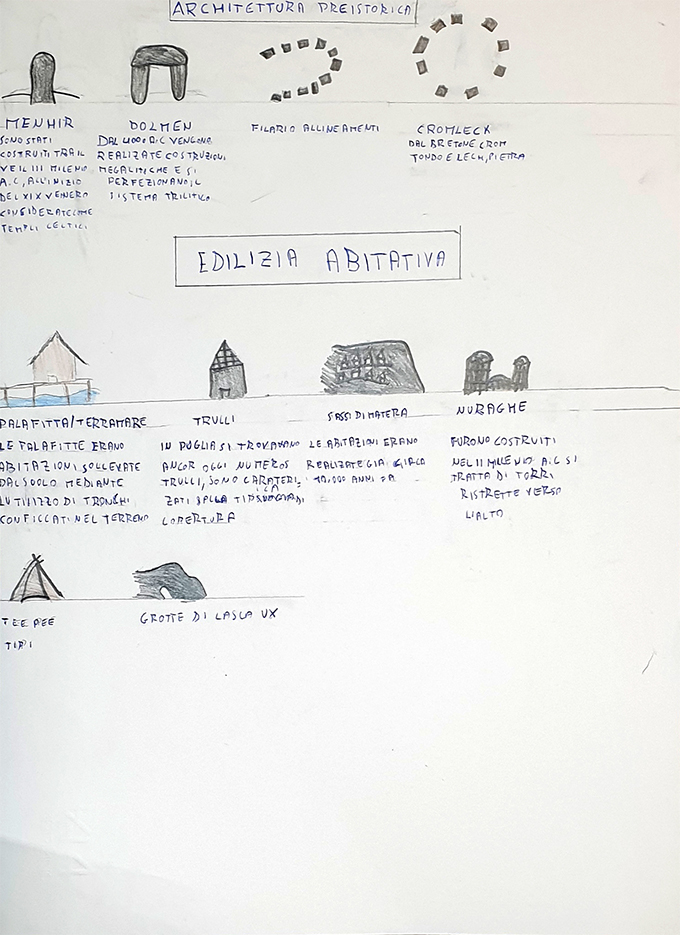 ARCHITETTURA PREISTORICA
MENHIR
SONO STATI
COSTRUITI TRA IL
V E IL III MILENO
A.C, ALL'INIZIO
DEL XIX VENNERO
CONSIDERATE COME
TEMPLI CELTICI
DOLMEN
DAL 4000 A.C VENGONO
REALIZATE COSTRUZIONI
MEGALITICHE E SI
PERFEZIONANO IL
SISTEMA TRILITICO
FILARIO ALLINEAMENTI
CROMLECK
DAL BRETONE CROM
TONDO E LECH, PIETRA
EDILIZIA ABITATIVA
PALAFITTA/TERRAMARE
LE PALAFITTE ERANO
ABITAZIONI SOLLEVATE
DAL SUOLO MEDIANTE
L'UTILIZZO DI TRONCHI
CONFICCATI NEL TERRENO
TRULLI
IN PUGLIA SI TROVAVANO
ANCOR OGGI NUMEROS
TRULLI, SONO CARATERI.
ZATI DALLA TIPICA
COPERTURA
SASSI DI MATERA
LE ABITAZIONI ERANO
REALIZATE GIA CIRCA
10.000 ANNI FA
NURAGHE
FURONO COSTRUITI
NEL II MILLENIO A.C SI
TRATTA DI TORRI
RISTRETTE VERSO
L'ALTO
TEEPEE
TIPI
GROTTE DI LASCAUX